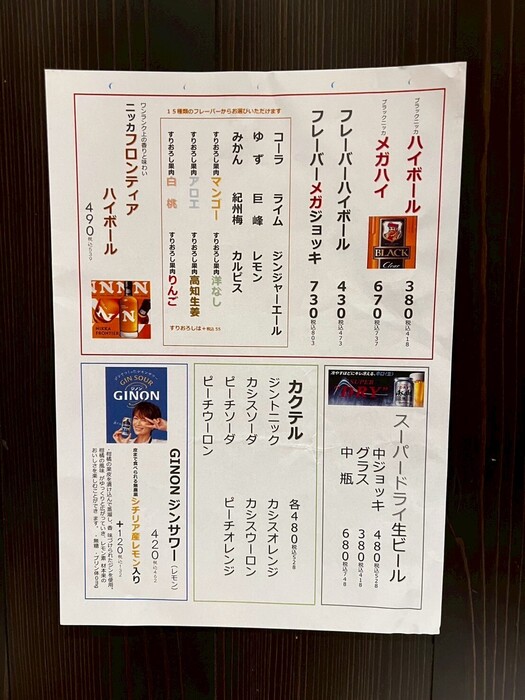 ブラックニッカ
ハイボール 380 税込418
ブラックニッカ
メガハイ 670 税込737
BLACK
Clear
フレーバーハイボール 430 税込473
フレーバーメガジョッキ 730 税込803
15種類のフレーバーからお選びいただけます
コーラ ライム ジンジャーエール
ゆず 巨峰 レモン
みかん 紀州梅 カルピス
すりおろし果肉 マンゴー すりおろし果肉 洋なし
すりおろし果肉 アロエ すりおろし果肉 高知生姜
すりおろし果肉 白桃 すりおろし果肉 りんご
すりおろしは+税込55
ワンランク上の香りと味わい
ニッカフロンティア
ハイボール
490 税込539
NIKKA
FRONTIER
SUPER
DRY
スーパードライ生ビール
中ジョッキ 480 税込528
グラス 380 税込418
中瓶 680 税込748
カクテル 各480 税込528
ジントニック カシスオレンジ
カシスソーダ カシスウーロン
ピーチソーダ ピーチオレンジ
ピーチウーロン
GIN SOUR
GINON
GINON ジンサワー(レモン)
420 税込462
皮まで食べられる無農薬 シチリア産レモン入り
+120 税込132